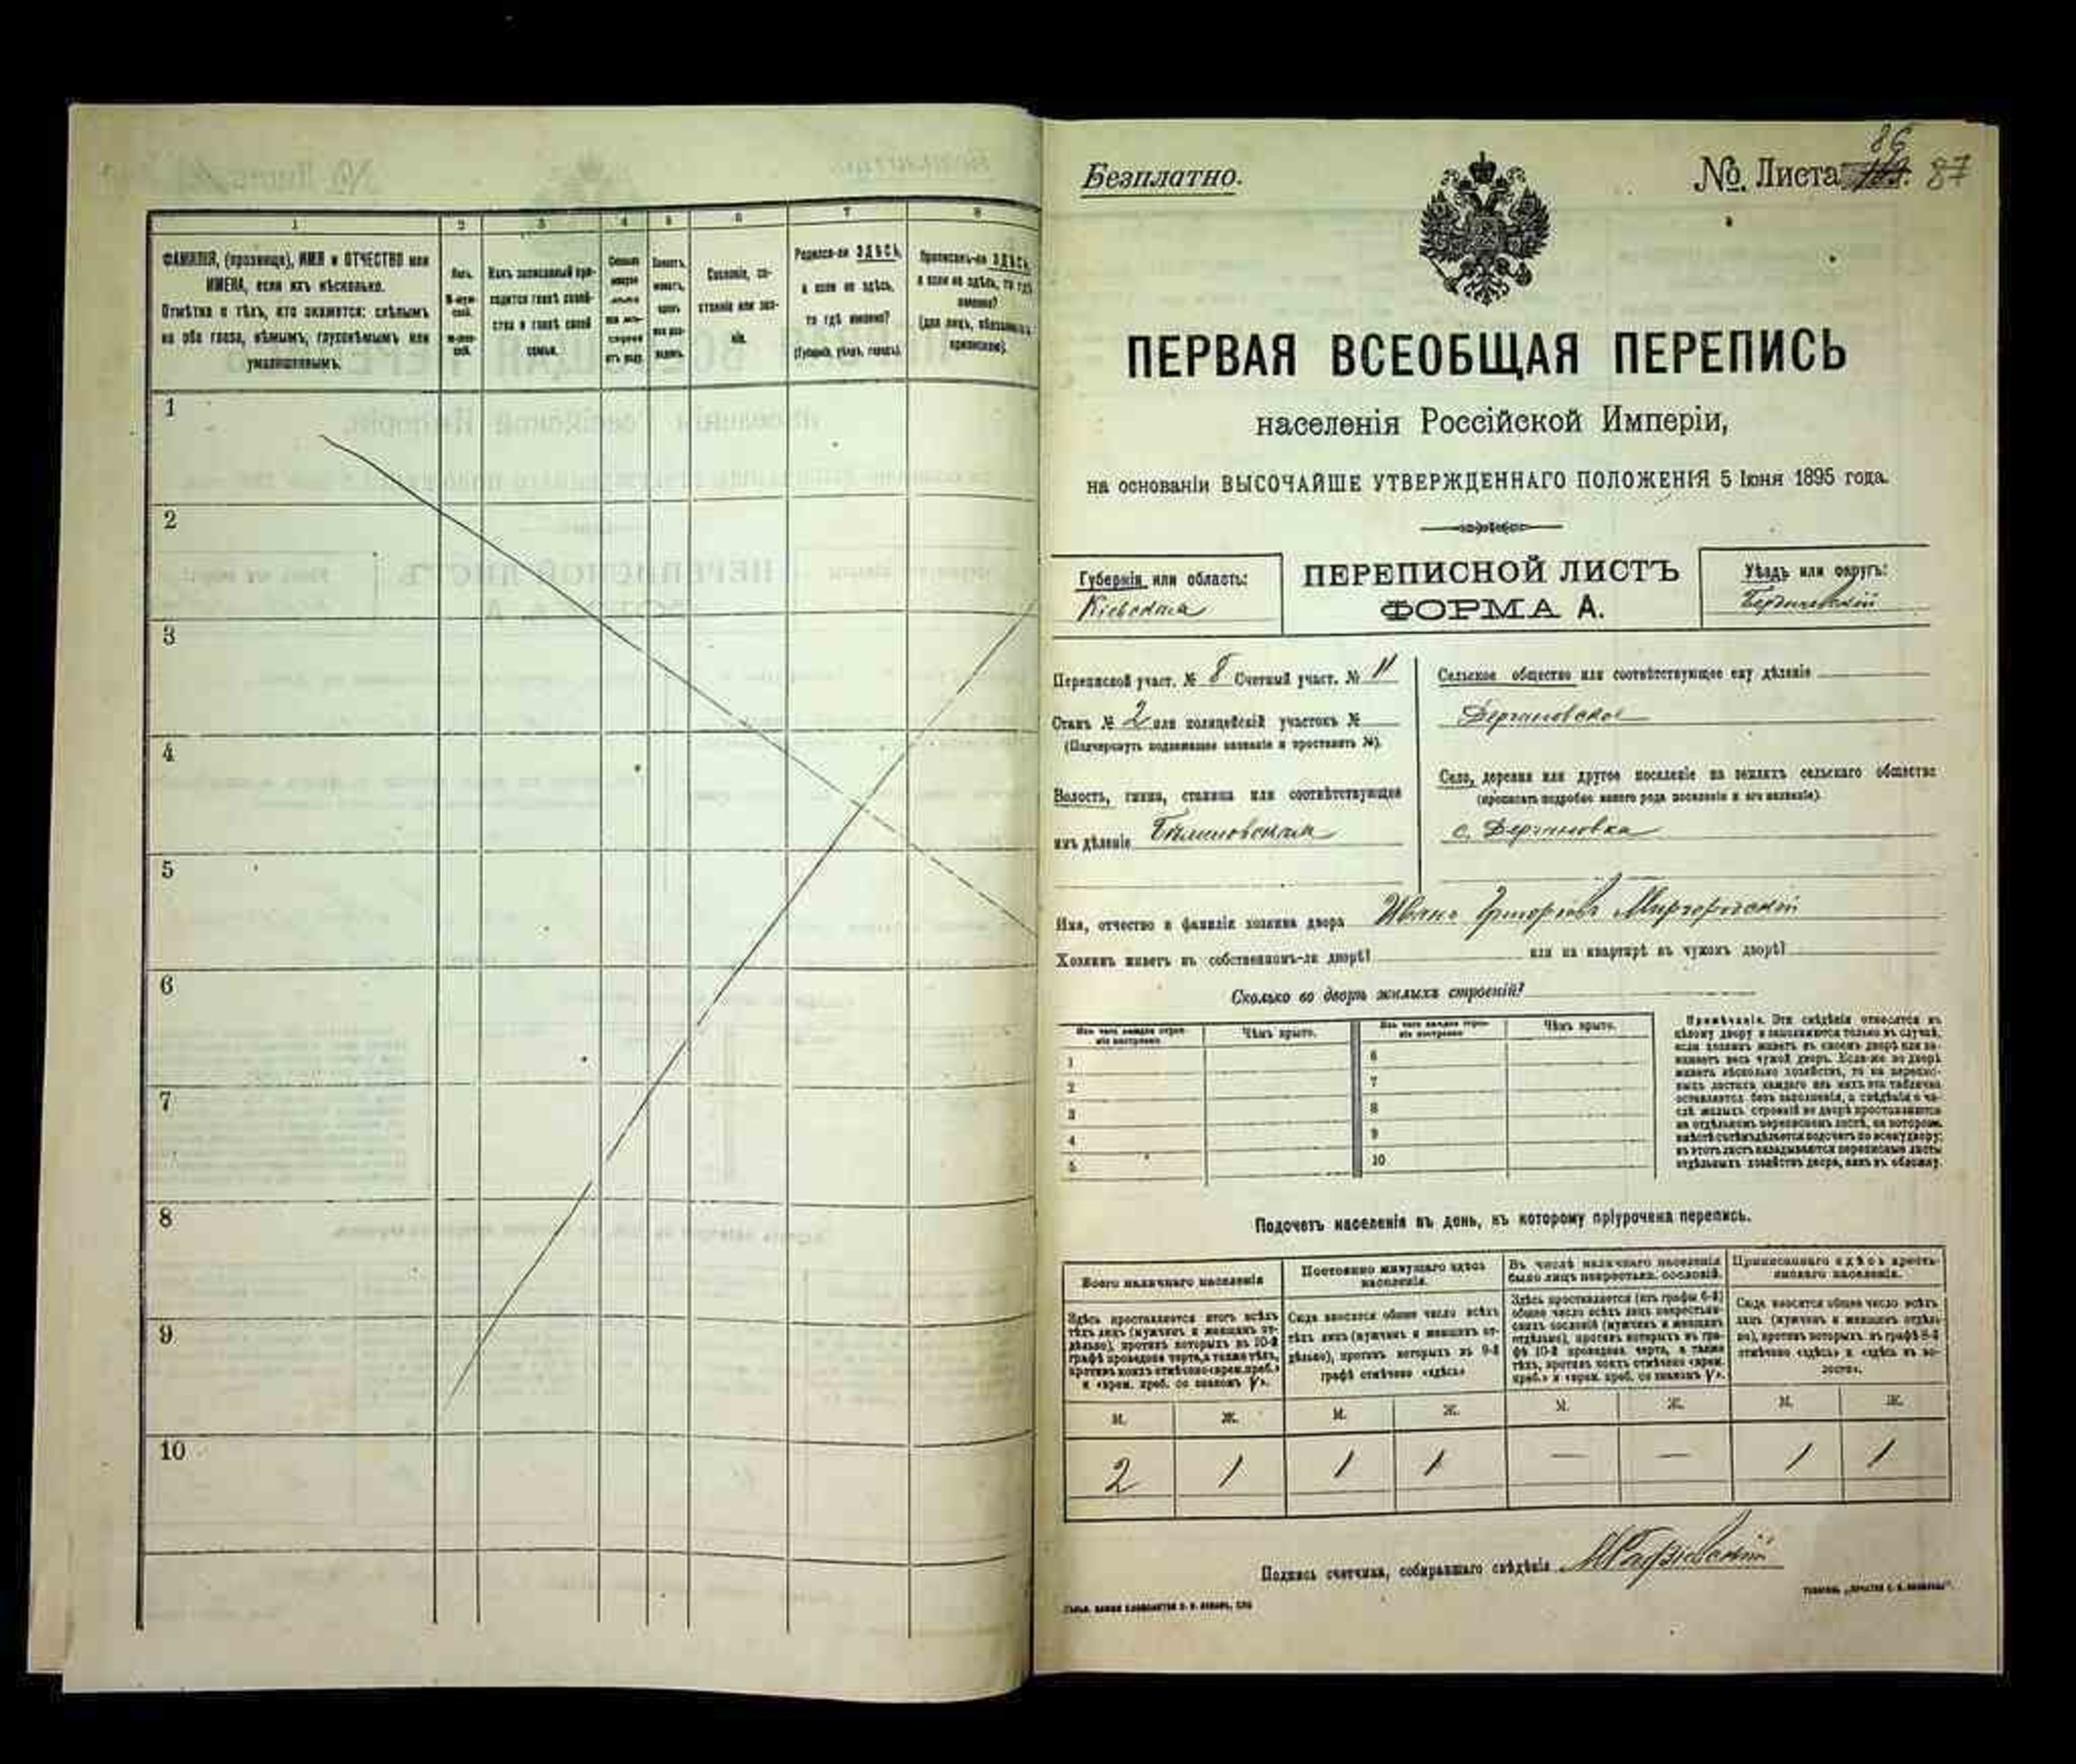 1 2 3 4 5 6 7 8
ФАМИЛІЯ, (прозвище), ИМЯ и ОТЧЕСТВО или
ИМЕНА, если ихъ нѣсколько.
Отмѣтка о тѣхъ, кто окажется: слѣпымъ
на оба глаза, нѣмымъ, глухонѣмымъ или
умалишеннымъ.
Полъ.
Какъ записанный при-
ходится главѣ хозяй-
ства и главѣ своей
семьи.
Сословіе, со-
стояніе или зва-
ніе.
Родился-ли ЗДѢСЬ,
а если не здѣсь,
то гдѣ именно?
(Губернія, уѣздъ, городъ).
Приписанъ-ли ЗДѢСЬ,
а если не здѣсь, то гдѣ
именно?
(для лицъ, обязанныхъ
припискою).
1
2
3
4
5
6
7
8
9
10
Безплатно.
№ Листа 86 87
ПЕРВАЯ ВСЕОБЩАЯ ПЕРЕПИСЬ
населенія Россійской Имперіи,
на основаніи ВЫСОЧАЙШЕ УТВЕРЖДЕННАГО ПОЛОЖЕНІЯ 5 Іюня 1895 года.
Губернія или область:
Кіевская
ПЕРЕПИСНОЙ ЛИСТЪ
ФОРМА А.
Уѣздъ или округъ:
Бердичевскій
Переписной участ. № 8 Счетный участ. № 11
Станъ № 2 или полицейскій участокъ №
(Подчеркнуть подлежащее названіе и проставить №).
Волость, гмина, станица или соотвѣтствующее
имъ дѣленіе
Сельское общество или соотвѣтствующее ему дѣленіе
Дергановское
Село, деревня или другое поселеніе на земляхъ сельскаго общества
(прописать подробно какого рода поселеніе и его названіе)
с. Дергановка
Имя, отчество и фамилія хозяина двора Иванъ Григорьевъ Миргородскій
Хозяинъ живетъ въ собственномъ-ли дворѣ? или на квартирѣ въ чужомъ дворѣ?
Сколько во дворѣ жилыхъ строеній?
Изъ чего каждое строе-
ніе построено
Чѣмъ крыто.
Изъ чего каждое строе-
ніе построено
Чѣмъ крыто.
1 6
2 7
3 8
4 9
5 10
Примѣчаніе. Эти свѣдѣнія относятся къ
цѣлому двору и заполняются только въ случаѣ,
если хозяинъ живетъ въ своемъ дворѣ или за-
нимаетъ весь чужой дворъ. Если-же во дворѣ
живетъ нѣсколько хозяйствъ, то на перепис-
ныхъ листахъ каждаго изъ нихъ эта табличка
оставляется безъ заполненія, а свѣдѣнія о чи-
слѣ жилыхъ строеній во дворѣ проставляются
на отдѣльномъ переписномъ листѣ, на которомъ
вмѣстѣ съ тѣмъ дѣлается подсчетъ по всему двору;
въ этотъ листъ вкладываются переписные листы
отдѣльныхъ хозяйствъ двора, какъ въ обложку.
Подсчетъ населенія въ день, къ которому пріурочена перепись.
Всего наличнаго населенія
Здѣсь проставляется итогъ всѣхъ
тѣхъ лицъ (мужчинъ и женщинъ от-
дѣльно), противъ которыхъ въ 10-й
графѣ проведена черта, а также тѣхъ,
противъ коихъ отмѣчено «врем. преб.»
и «врем. преб. со знакомъ V».
Постоянно живущаго здѣсь
населенія.
Сюда вносится общее число всѣхъ
тѣхъ лицъ (мужчинъ и женщинъ от-
дѣльно), противъ которыхъ въ 9-й
графѣ отмѣчено «здѣсь»
Въ числѣ наличнаго населенія
было лицъ некрестьян. сословій.
Здѣсь проставляется (изъ графы 6-й)
общее число всѣхъ лицъ некрестьян-
скихъ сословій (мужчинъ и женщинъ
отдѣльно), противъ которыхъ въ гра-
фѣ 10-й проведена черта, а также
тѣхъ, противъ коихъ отмѣчено «врем.
преб.» и «врем. преб. со знакомъ V».
Приписаннаго здѣсь кресть-
янскаго населенія.
Сюда вносится общее число всѣхъ
лицъ (мужчинъ и женщинъ отдѣль-
но), противъ которыхъ въ графѣ 8-й
отмѣчено «здѣсь» и «здѣсь въ во-
лости».
М. Ж. М. Ж. М. Ж. М. Ж.
2 1 1 1 — — 1 1
Подпись счетчика, собиравшаго свѣдѣнія